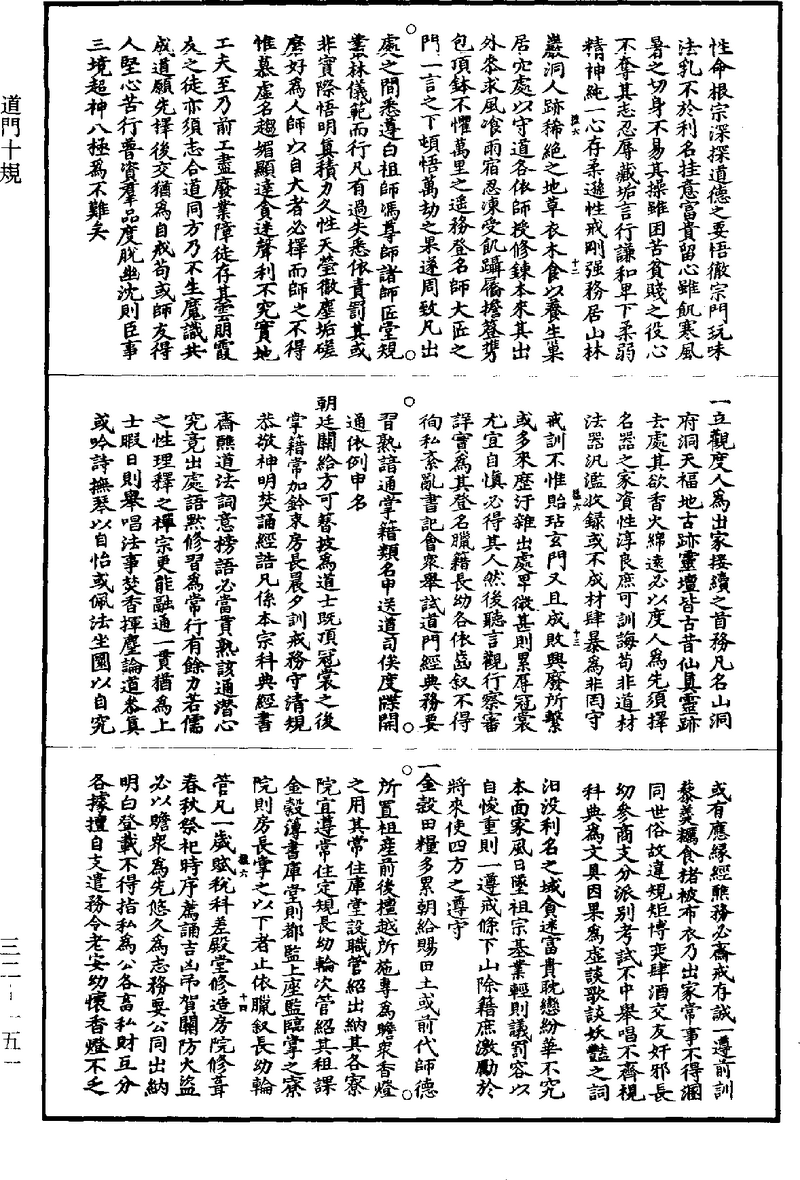 道門十規
三二-一五一
性命根宗深探道德之要悟徹宗門玩味
法乳不於利名挂意富貴留心雖飢寒風
暑之切身不易其操雖困苦貧賤之役心
不奪其志忍辱藏垢言行謙和卑下柔弱
精神純一心存柔遜性戒剛强務居山林
十二
巖洞人跡稀絕之地草衣木食以養生巢
居穴處以守道各依師授修鍊本來其出
外叅求風飡雨宿忍凍受飢躡屩擔簦携
包頂鉢不憚萬里之遥務登名師大匠之
門一言之下頓悟萬劫之果遂周致凡出
處之間悉遵白祖師馮尊師諸師匠堂規
叢林儀範而行凡有過失悉依責罰其或
非實際悟明真積力久性天瑩徹塵垢磋
磨好為人師以自大者必擇而師之不得
惟慕虛名趨媚顯達貪迷聲利不究實地
工夫至乃前工盡廢業障徒存其雲朋霞
友之徒亦須志合道同方乃不生魔識共
成道願先擇後交猶為自戒苟或師友得
人堅心苦行普資羣品度脫幽沈則臣事
三境超神八極為不難矣
一立觀度人為出家接續之首務凡名山洞
府洞天福地古跡靈壇皆古昔仙真靈跡
去處其欲香火綿遠必以度人為先須擇
名器之家資性淳良庶可訓誨苟非道材
法器汎濫收録或不成材肆暴為非罔守
十三
戒訓不惟貽玷玄門又且成敗興廢所繫
或多來歷汙雜出處卑微甚則累辱冠裳
尤宜自慎必得其人然後聽言觀行察審
詳實為其登名臘籍長幼各依齒叙不得
徇私紊亂書記會衆舉試道門經典務要
習熟諳通掌籍類名申送道司俟度牒開
通依例申名
朝廷關給方可簪披為道士既頂冠裳之後
掌籍常加鈐束房長晨夕訓戒務守清規
恭敬神明焚誦經誥凡係本宗科典經書
齋醮道法詞意榜語必當貫熟該通潛心
究竟出處語黙修習為常行有餘力若儒
之性理釋之禪宗更能融通一貫猶為上
士暇日則舉唱法事焚香揮麈論道叅真
或吟詩撫琴以自怡或佩法坐圜以自究
或有應緣經醮務必齋戒存誠一遵前訓
藜羹糲食楮被布衣乃出家常事不得溷
同世俗故違規矩博奕肆酒交友奸邪長
幼參商支分派別考試不中舉唱不齊視
科典為文具因果為虛談歌談妖豔之詞
汨没利名之域貪迷富貴耽戀紛華不究
本面家風日墜祖宗基業輕則議罰容以
自悛重則一遵戒條下山除籍庶激勵於
將來使四方之遵守
一金穀田糧多累朝給賜田土或前代師德
所置祖產前後檀越所施專為贍衆香燈
之用其常住庫堂設職管紹出納其各寮
院宜遵常住定規長幼輪次管紹其租課
金穀簿書庫堂則都監上座監臨掌之寮
院則房長掌之以下者止依臘叙長幼輪
十四
管凡一歲賦稅科差殿堂修造房院修葺
春秋祭祀時序薦誦吉凶弔賀關防火盜
必以贍衆為先悠久為志務要公同出納
明白登載不得指私為公各畜私財互分
各據擅自支遣務令老安幼懷香燈不乏